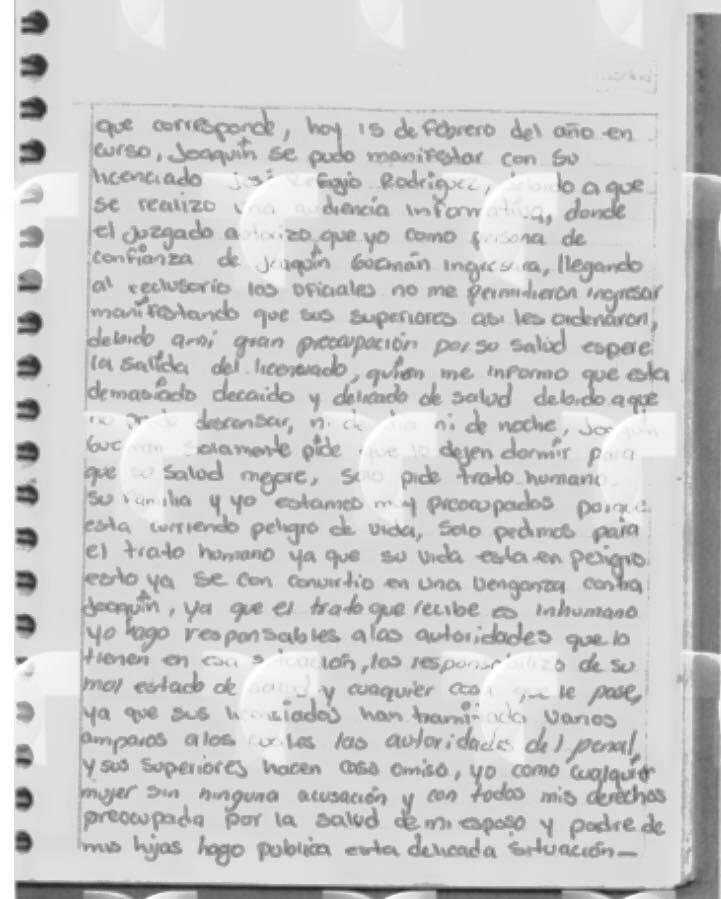 que corresponde, hoy 15 de febrero del año en
curso, Joaquín se pudo manifestar con su
licenciado José Refugio Rodriguez, debido a que
se realizo una audiencia informativa, donde
el juzgado autorizo que yo como persona de
confianza de Joaquín Guzmán ingresara, llegando
al reclusorio los oficiales no me permitieron ingresar
manifestando que sus superiores asi les ordenaron,
debido a mi gran preocupación por su salud espere
la salida del licenciado, quien me informo que esta
demasiado decaido y delicado de salud debido a que
no puede descansar, ni de dia ni de noche, Joaquín
Guzman solamente pide que lo dejen dormir para
que su salud mejore, solo pide trato humano.
su familia y yo estamos muy preocupados porque
esta corriendo peligro de vida, solo pedimos para
el trato humano ya que su vida esta en peligro
esto ya se con convirtio en una venganza contra
Joaquín, ya que el trato que recibe es inhumano
yo hago responsables a las autoridades que lo
tienen en esa situación, los responsabilizo de su
mal estado de salud y cuaquier cosa que le pase,
ya que sus licensiados han tramitado varios
amparos a los cuales las autoridades del penal
y sus superiores hacen caso omiso, yo como cualquier
mujer sin ninguna acusación y con todos mis derechos
preocupada por la salud de mi esposo y padre de
mis hijas hago publica esta delicada situación—